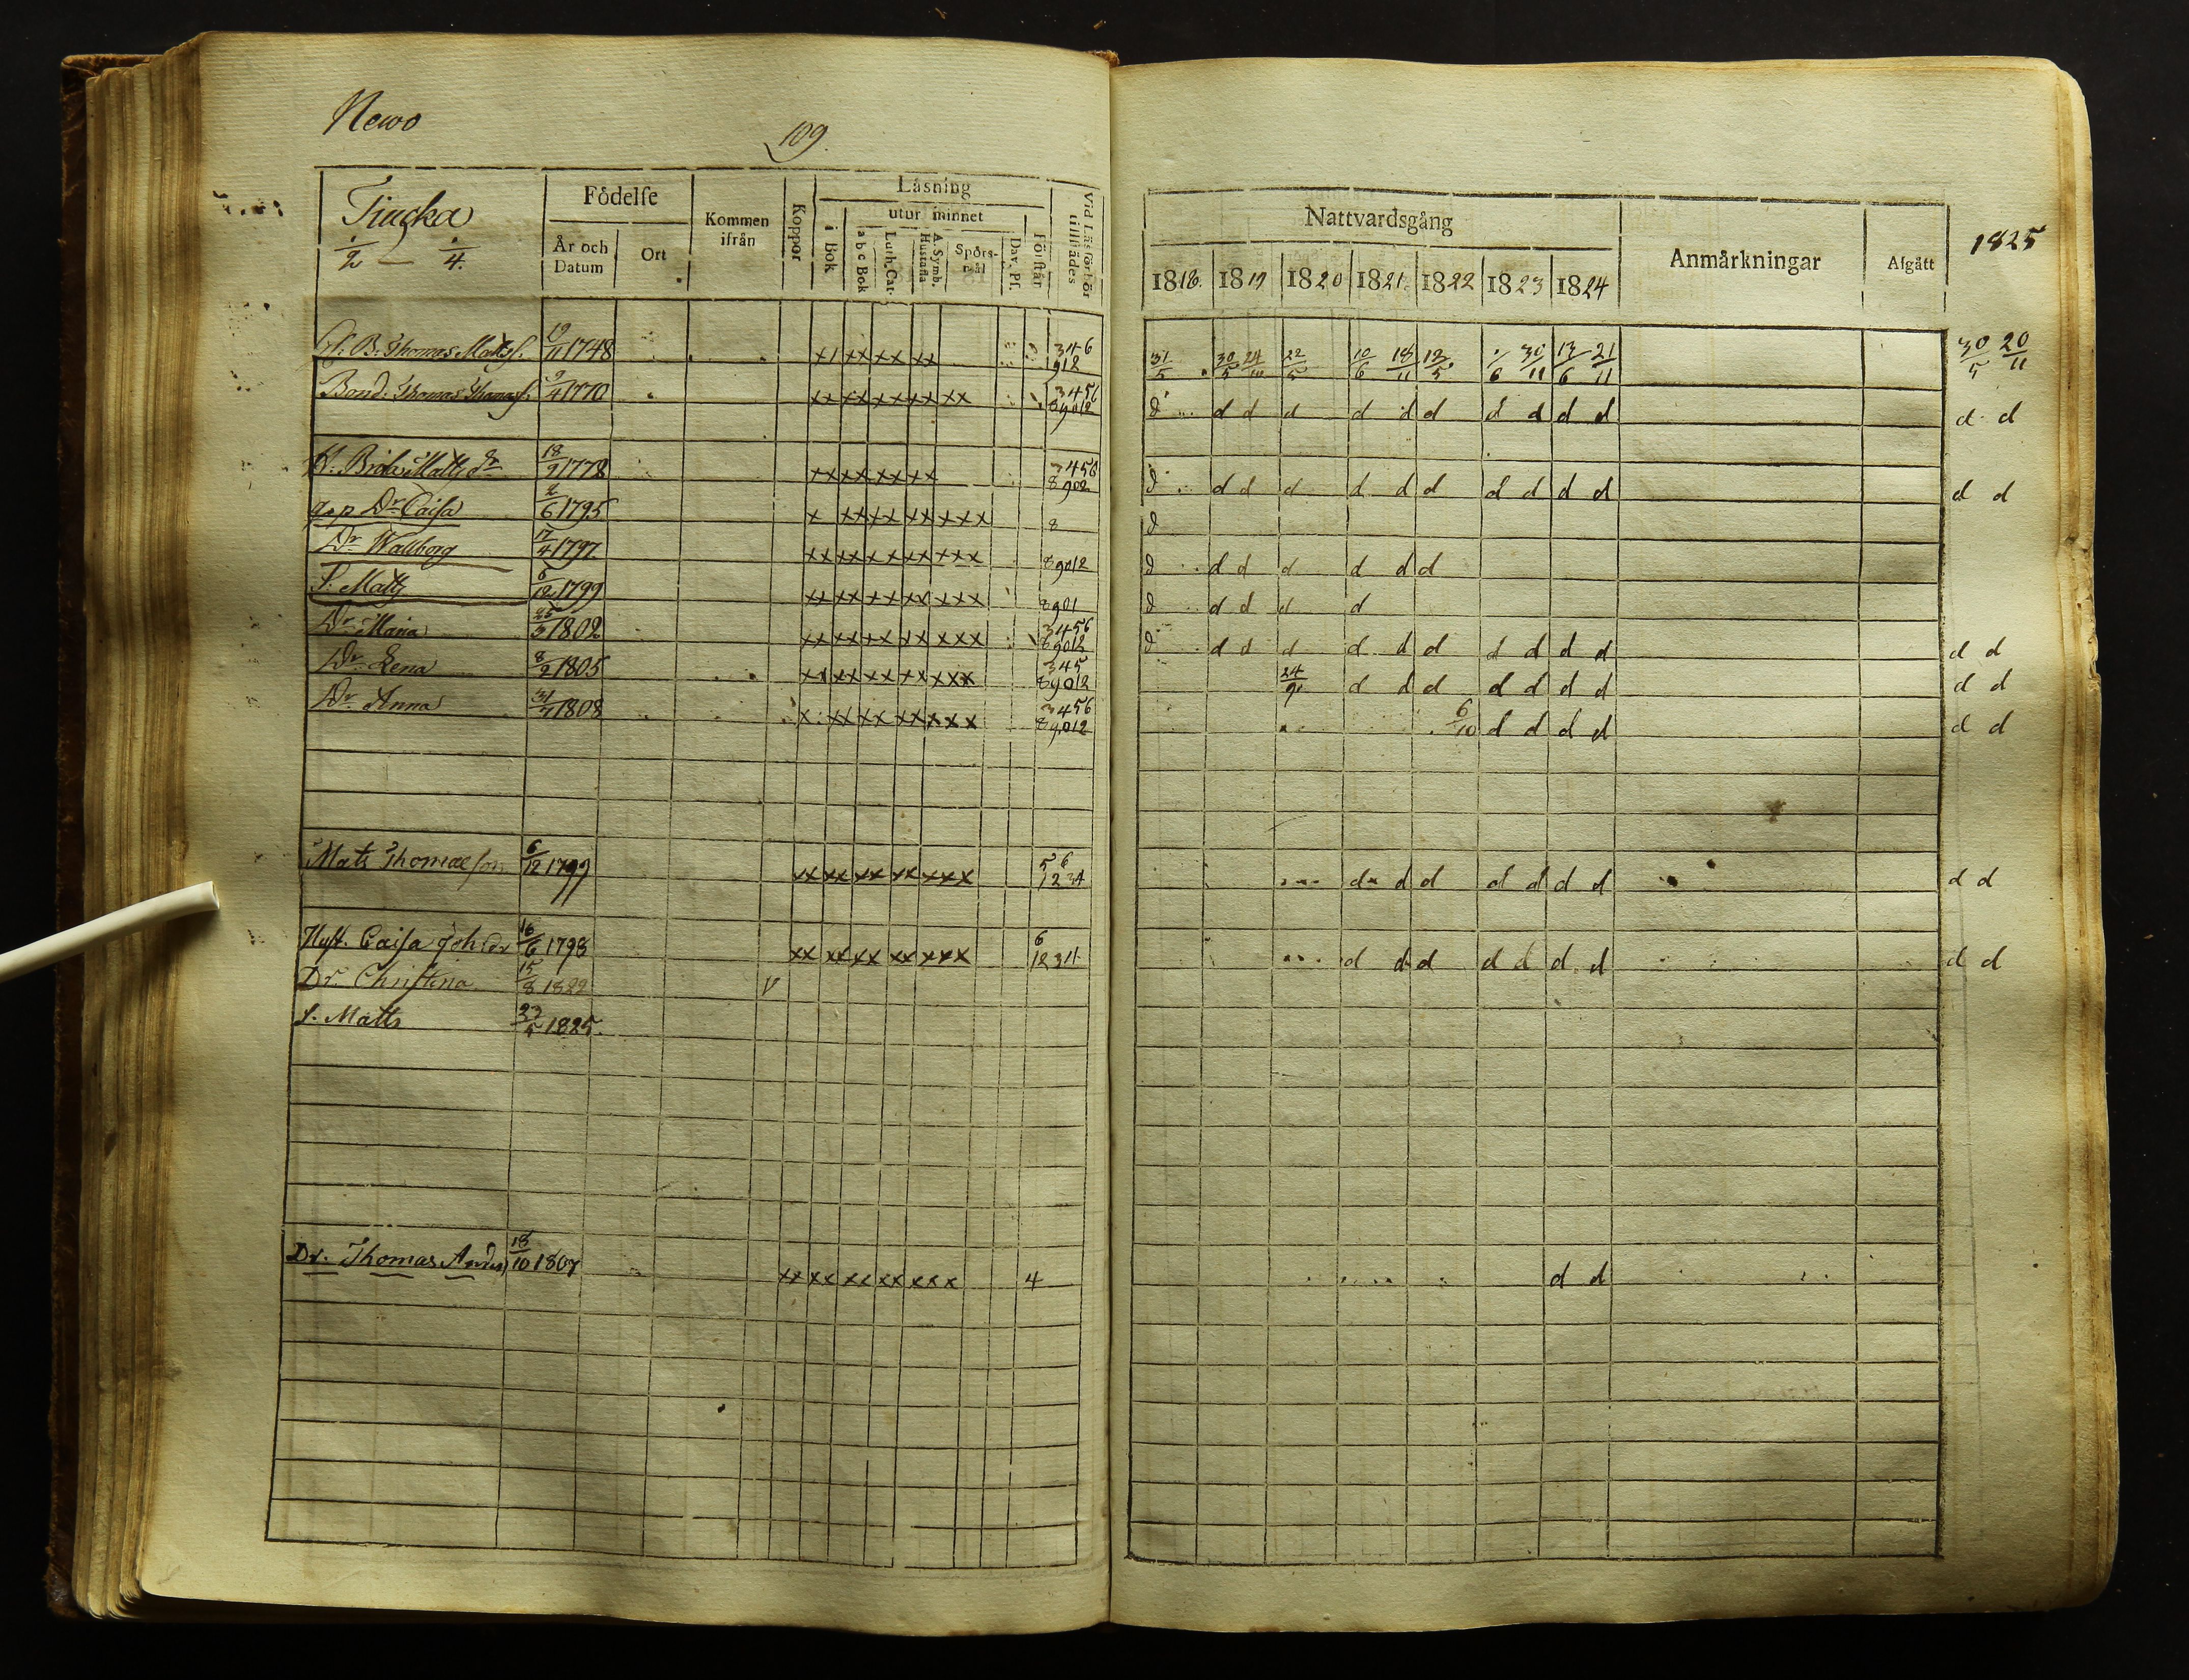 Newo
109.
Födelse
År och Datum
Ort
Kommen ifrån
Koppor
Läsning
i Bok
utur minnet
a b c Bok
Luth. Cat.
A. Symb. Hustafla
Spörsmål
Dav. Ps.
Förstår
Vid Läsförhör tillstädes
1/2 — 1/4.
Thomas Matts. 19/11 1748 x1 xx xx xx 3 4 6 1 9 12
Bond. Thomas Thomas. 9/4 1770 xx xx xx xx xx 3 4 5 6 8 9 0 1 2
H. Brita Matts dr 18/9 1778 xx xx xx xx 3 4 5 6 8 9 0 2
Dr Caisa 2/6 1795 x xx xx xx xxx 8
Dr Wallborg 17/4 1797 xx xx xx xx xxx 8 9 0 1 2
S. Matts 6/12 1799 xx xx xx xx xxx 8 9 0 1
Dr Maria 25/3 1802 xx xx xx xx xxx 3 4 5 6 8 9 0 1 2
Dr Lena 8/2 1805 xx xx xx xx xxx 3 4 5 8 9 0 1 2
Dr Anna 1808 x xx xx xx xxx 3 4 5 6 8 9 0 1 2
Mats Thomasson 6/12 1799 xx xx xx xx xxx 5 6 1 2 3 4
Hust. Caisa Joh dr 16/6 1798 xx xx xx xx xxx 6 1 2 3 4
Dr. Christina 15/8 1822 v
S. Matts 23/5 1825.
Dr. Thomas Anders 18/10 1807 xx xx xx xx xxx 4
Nattvardsgång
Anmärkningar
Afgått
1825
1818. 1819 1820 1821. 1822 1823 1824
31/5 30/5 24/10 22/5 10/6 18/11 12/5 1/6 30/11 13/6 21/11 30/5 20/11
d d d d d d d d d d d d d
d d d d d d d d d d d d d
d
d d d d d d d
d d d d d
d d d d d d d d d d d d d
24/9 d d d d d d d d d
6/10 d d d d d d
d d d d d d d d d
d d d d d d d d d
d d